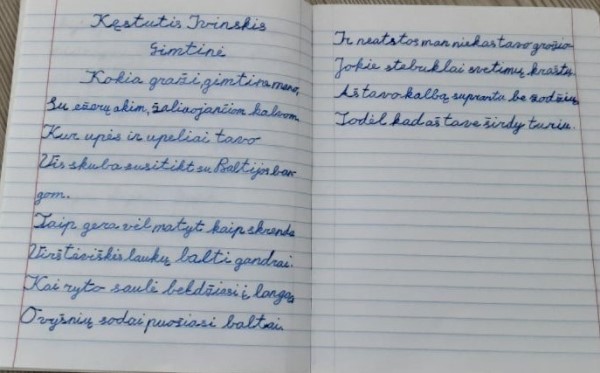 Kęstutis Ivinskis
Gimtinė
Kokia graži gimtinė mano,
Su ežerų akim, žaliuojančiom kalvom
Kur upės ir upeliai tavo
Vis skuba susitikt su Baltijos ban
gom.
Taip gera vėl matyt kaip skrenda
Virš tėviškės laukų balti gandrai.
Kai ryto saulė beldžiasi į langą,
O vyšnių sodai puošiasi baltai.
Ir neatstos man niekas tavo grožio
Jokie stebuklai svetimų kraštų
Aš tavo kalbą suprantu be žodžių
Todėl kad aš tave širdy turiu.